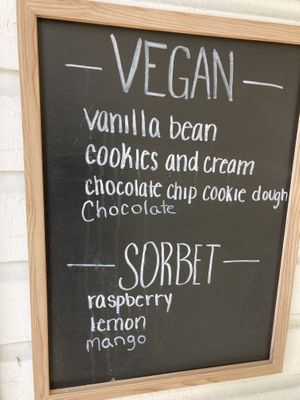 VEGAN
vanilla bean
cookies and cream
chocolate chip cookie dough
Chocolate
SORBET
raspberry
lemon
mango